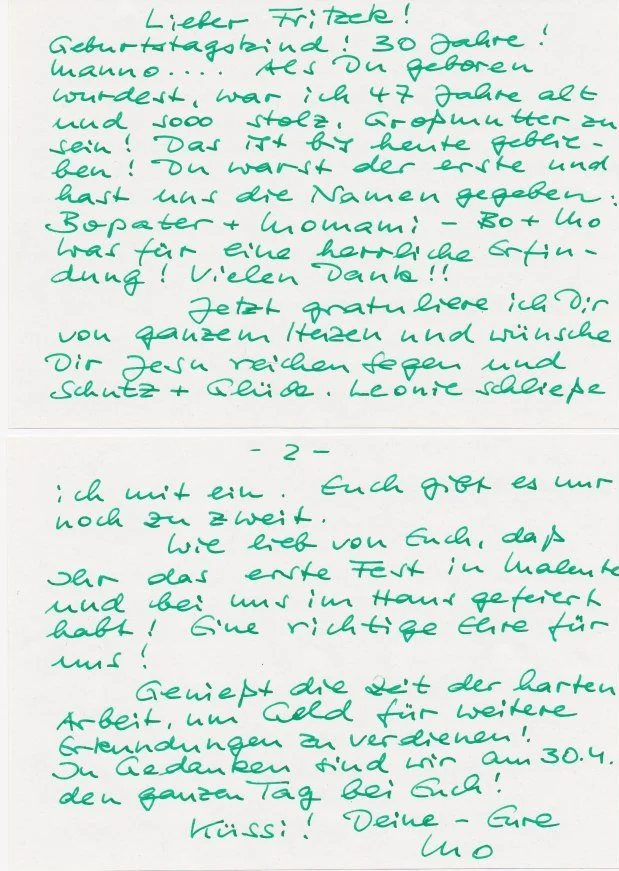 Lieber Fritzek!
Geburtstagskind! 30 Jahre!
Manno.... Als Du geboren
wurdest, war ich 47 Jahre alt
und sooo stolz, Großmutter zu
sein! Das ist bis heute geblie-
ben! Du warst der erste und
hast uns die Namen gegeben:
Bopater + Momami - Bo + Mo
Was für eine herrliche Erfin-
dung! Vielen Dank!!
Jetzt gratuliere ich Dir
von ganzem Herzen und wünsche
Dir Jesu reichen Segen und
Schutz + Glück. Leonie schließe
- 2 -
ich mit ein. Euch gibt es nur
noch zu zweit.
Wie lieb von Euch, daß
Ihr das erste Fest in Malente
und bei uns im Haus gefeiert
habt! Eine richtige Ehre für
uns!
Genießt die Zeit der harten
Arbeit, um Geld für weitere
Erkundungen zu verdienen!
In Gedanken sind wir am 30.4.
den ganzen Tag bei Euch!
Küssi! Deine - Eure
Mo